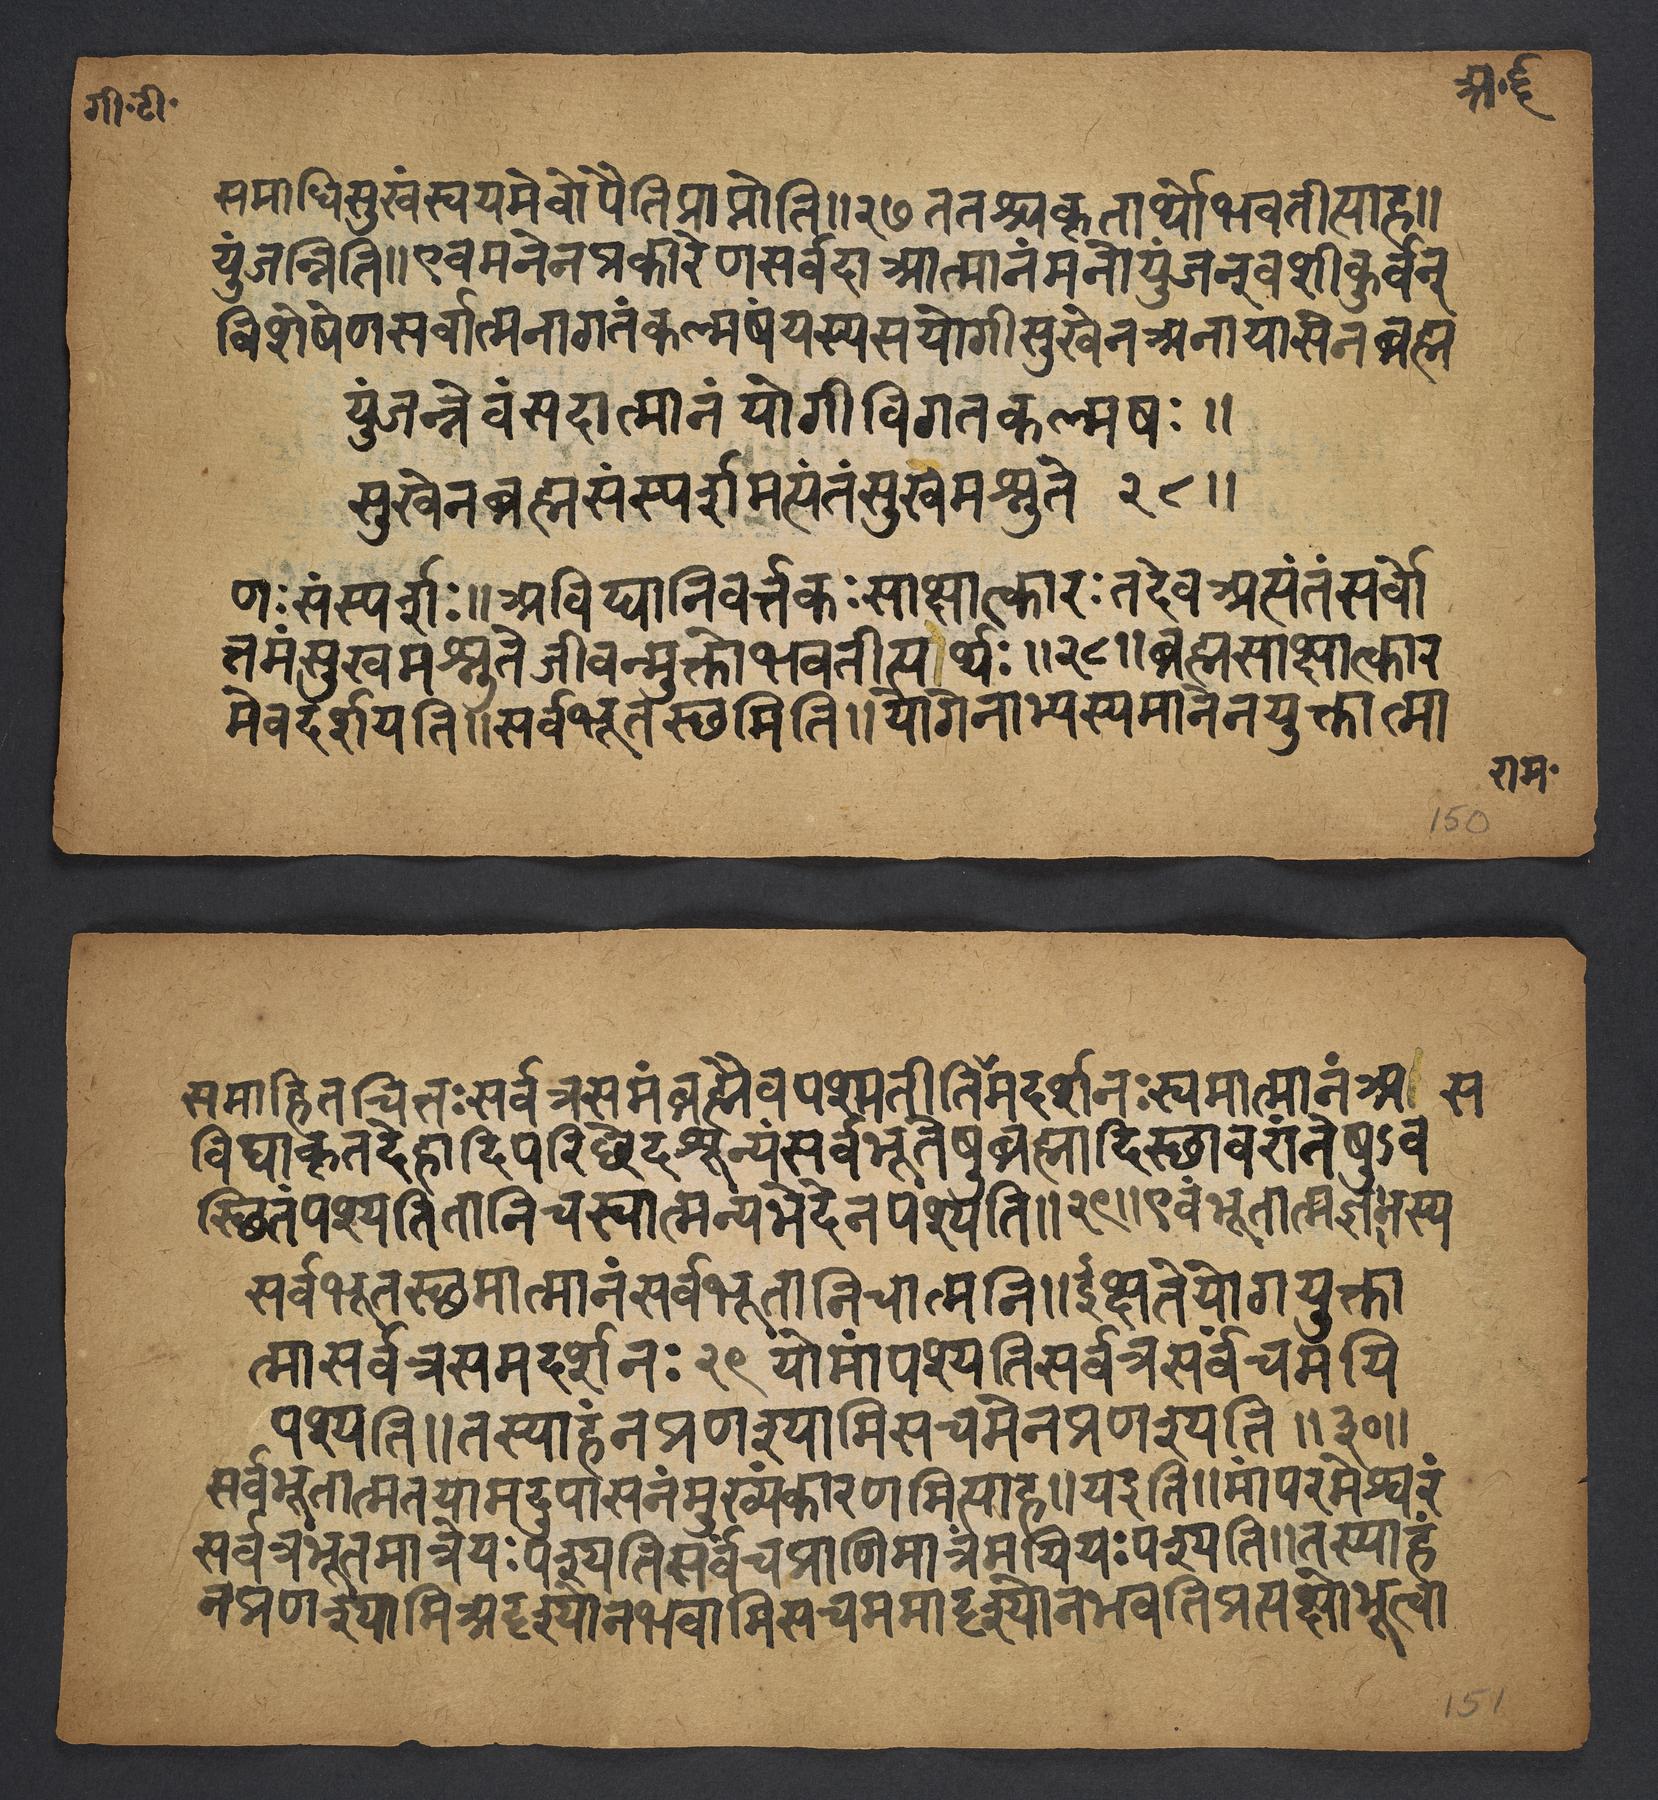 गी॰टी॰
अ॰६
समाधिसुखंस्वयमेवोपैतिप्राप्नोति॥२७ ततश्चकृतार्थोभवतीत्याह॥
युंजन्निति॥एवमनेनप्रकारेणसर्वदाआत्मानंमनोयुंजन्वशीकुर्वन्
विशेषेणसर्वात्मनागतंकल्मषंयस्यसयोगीसुखेनअनायासेनब्रह्म
युंजन्नेवंसदात्मानंयोगीविगतकल्मषः॥
सुखेनब्रह्मसंस्पर्शमत्यंतंसुखमश्नुते २८॥
णःसंस्पर्शः॥अविद्यानिवर्त्तकःसाक्षात्कारःतदेवअत्यंतंसर्वो
त्तमंसुखमश्नुतेजीवन्मुक्तोभवतीत्यर्थः॥२८॥ब्रह्मसाक्षात्कार
मेवदर्शयति॥सर्वभूतस्छमिति॥योगेनाभ्यस्यमानेनयुक्तात्मा
राम॰
150
समाहितचित्तःसर्वत्रसमंब्रह्मैवपश्यतीतिमदर्शनःस्वमात्मानंअ स
विद्याकृतदेहादिपरिछेदशून्यंसर्वभूतेषुब्रह्मादिस्छावरांतेषुऽव
स्छितंपश्यतितानिचस्वात्मन्यभेदेनपश्यति॥२९॥एवंभूतात्मज्ञेमस्य
सर्वभूतस्छमात्मानंसर्वभूतानिचात्मनि॥ईक्षतेयोगयुक्ता
त्मासर्वत्रसमदर्शनः२९ योमांपश्यतिसर्वत्रसर्वंचमयि
पश्यति॥तस्याहंनप्रणश्यामिसचमेनप्रणश्यति॥३०॥
सर्वभूतात्मतयामदुपासनंमुख्यंकारणमित्याह॥यइति॥मांपरमेश्वरं
सर्वत्रभूतमात्रेयःपश्यतिसर्वंचप्राणिमात्रंमयियःपश्यति॥तस्याहं
नप्रणश्यामिअदृश्योनभवामिसचममादृश्योनभवतिप्रत्यक्षोभूत्वा
151